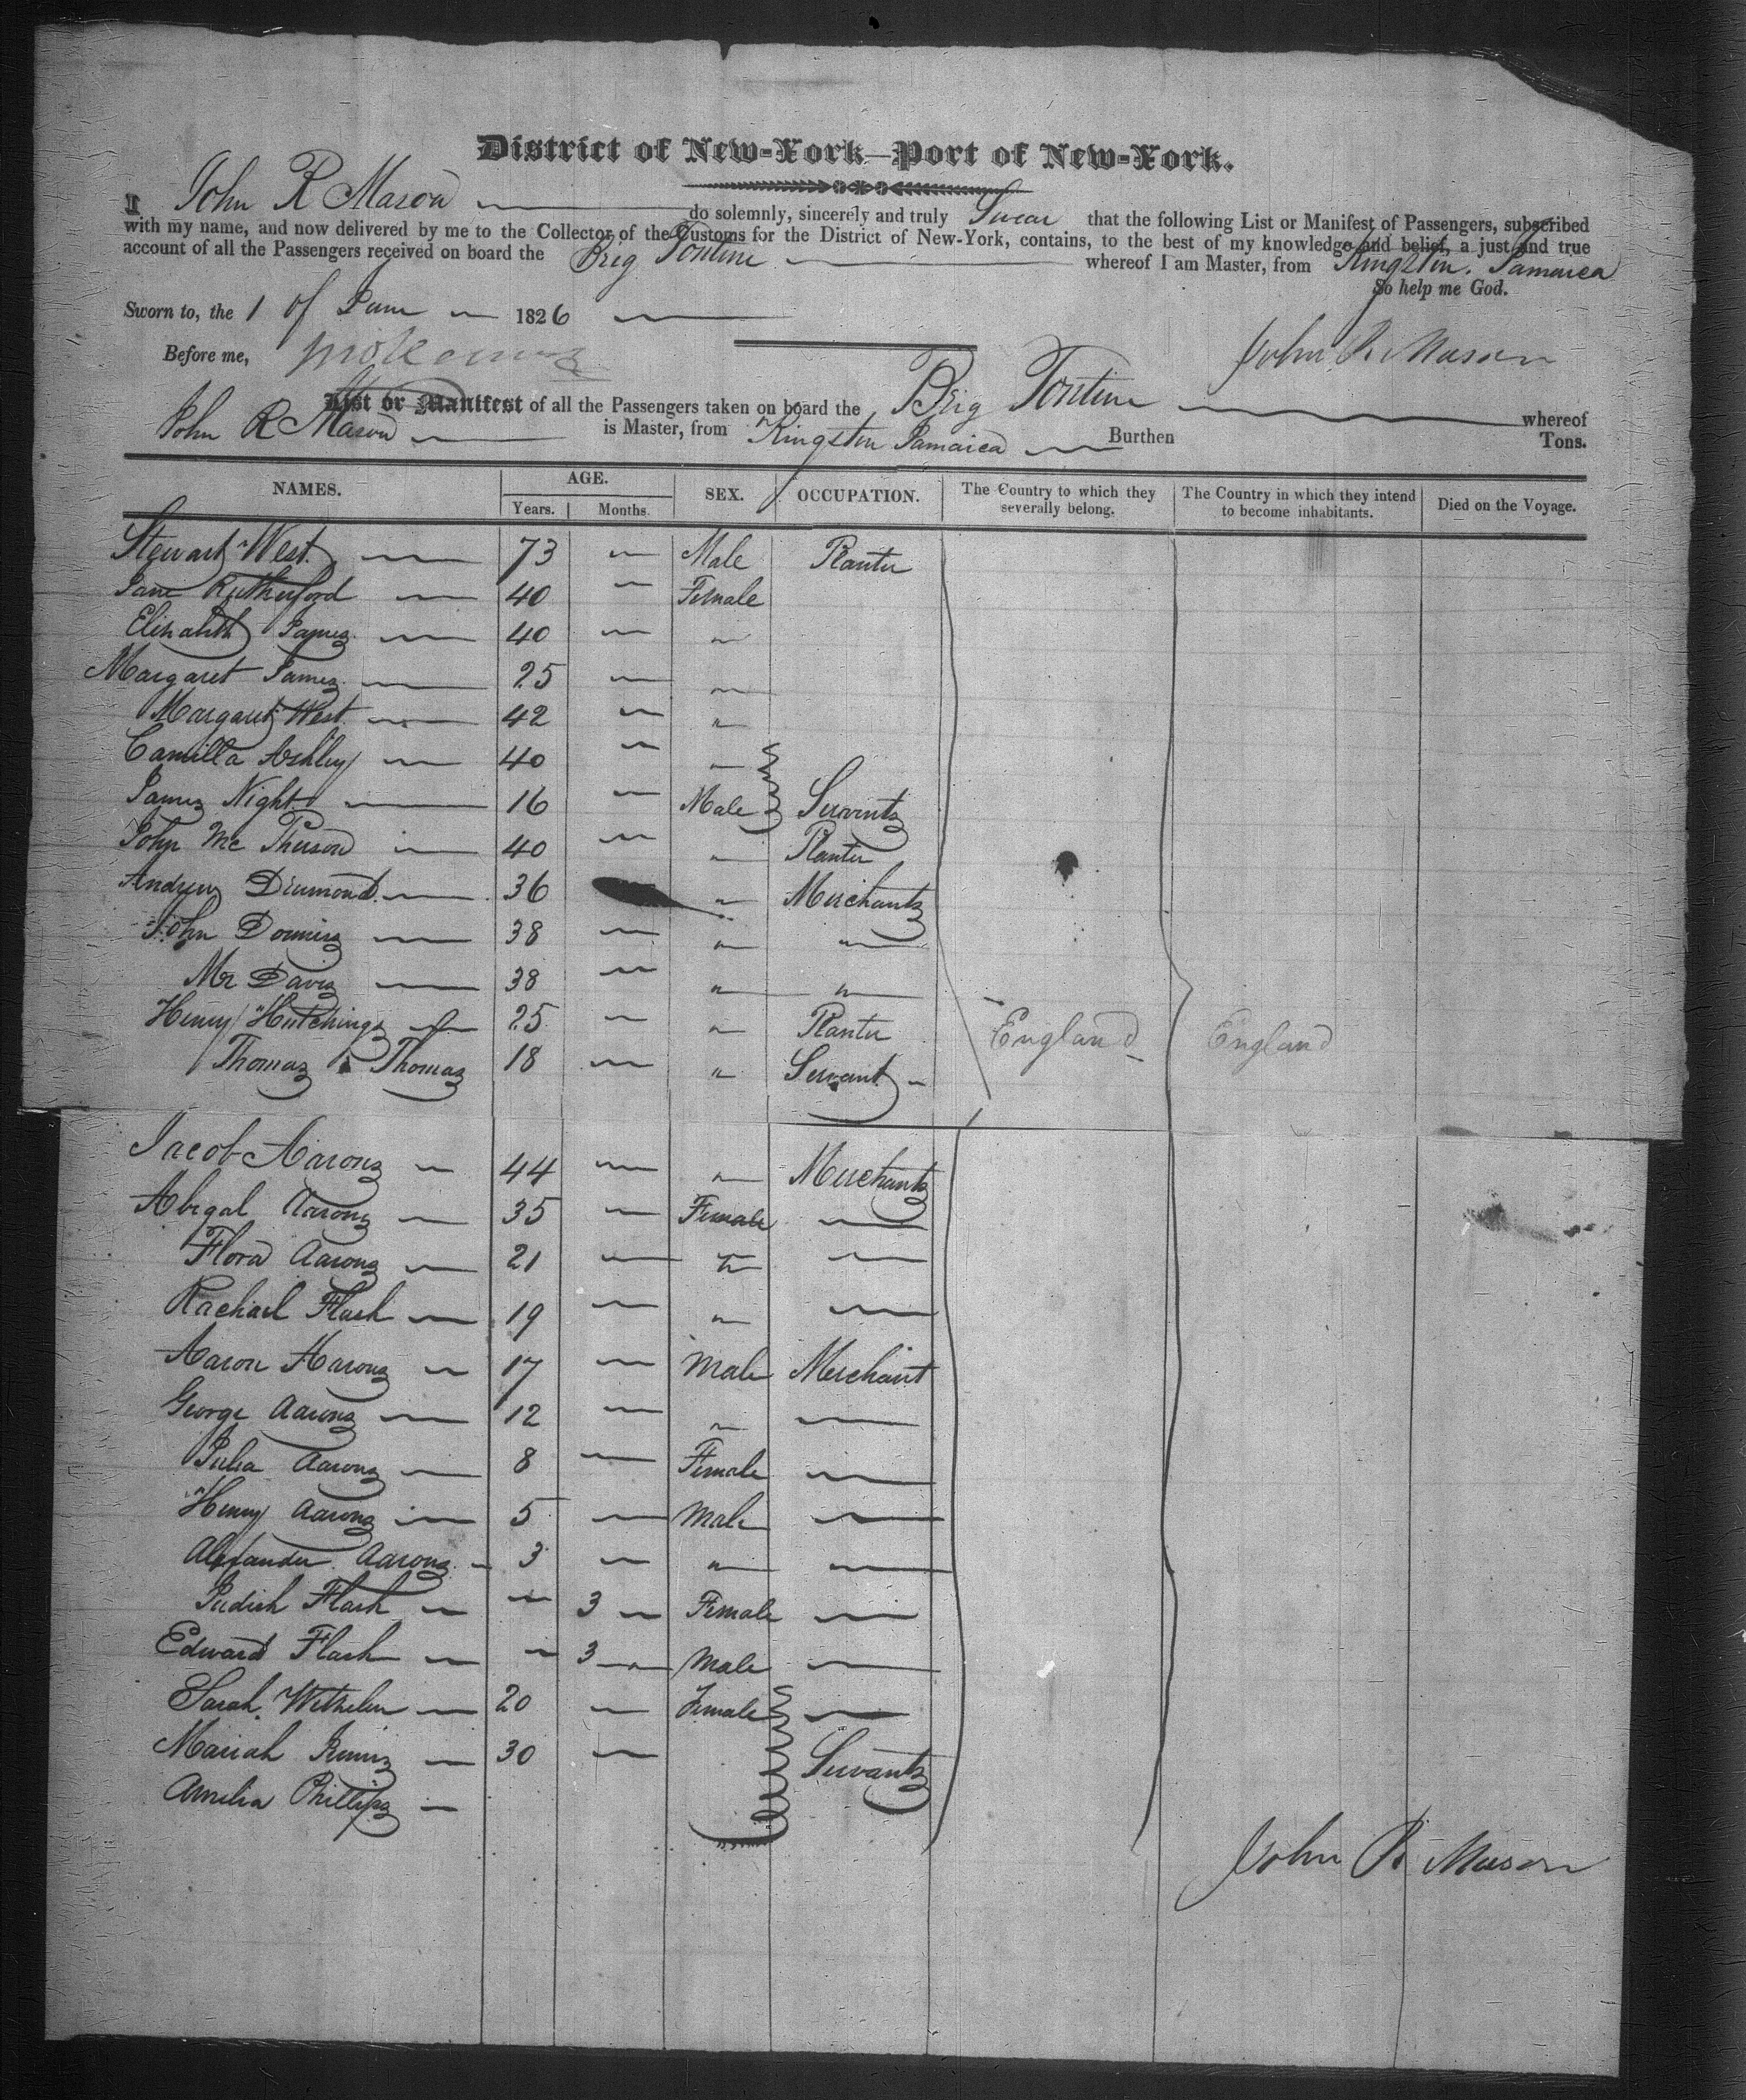 District of New-York—Port of New-York.
I John R Mason do solemnly, sincerely and truly Swear that the following List or Manifest of Passengers, subscribed
with my name, and now delivered by me to the Collector of the Customs for the District of New-York, contains, to the best of my knowledge and belief, a just and true
account of all the Passengers received on board the Brig Tontine whereof I am Master, from Kingston. Jamaica
So help me God.
Sworn to, the 1 of June 1826
Before me,
John R. Mason
List or Manifest of all the Passengers taken on board the Brig Tontine whereof
John R Mason is Master, from Kingston Jamaica Burthen Tons.
NAMES. AGE. Years. Months. SEX. OCCUPATION. The Country to which they severally belong. The Country in which they intend to become inhabitants. Died on the Voyage.
Stewart West. 73 — Male Planter
Jane Rutherford 40 — Female
Elizabeth James 40 — "
Margaret James 25 — "
Margaret West. 42 — "
Camilla Ashley 40 — "
James Night 16 — Male Servants
John Mc Pherson 40 — " Planter
Andrew Drumond 36 " Merchants
John 38 — " "
Mr Davis 38 — " "
Henry Hutchings 25 — " Planter England England
Thomas Thomas 18 — " Servant
Jacob Aarons 44 — " Merchants
Abigal Aarons 35 — Female —
Flora Aarons 21 — " —
Rachael Flash 19 — " —
Aaron Aarons 17 — Male Merchant
George Aarons 12 — " —
Julia Aarons 8 — Female —
Henry Aarons 5 — Male —
Alexander Aarons 3 — " —
Judith Flash — 3 Female —
Edward Flash — 3 Male —
Sarah 20 — Female —
Mariah 30 — Servants
Amelia Phillips —
John R. Mason